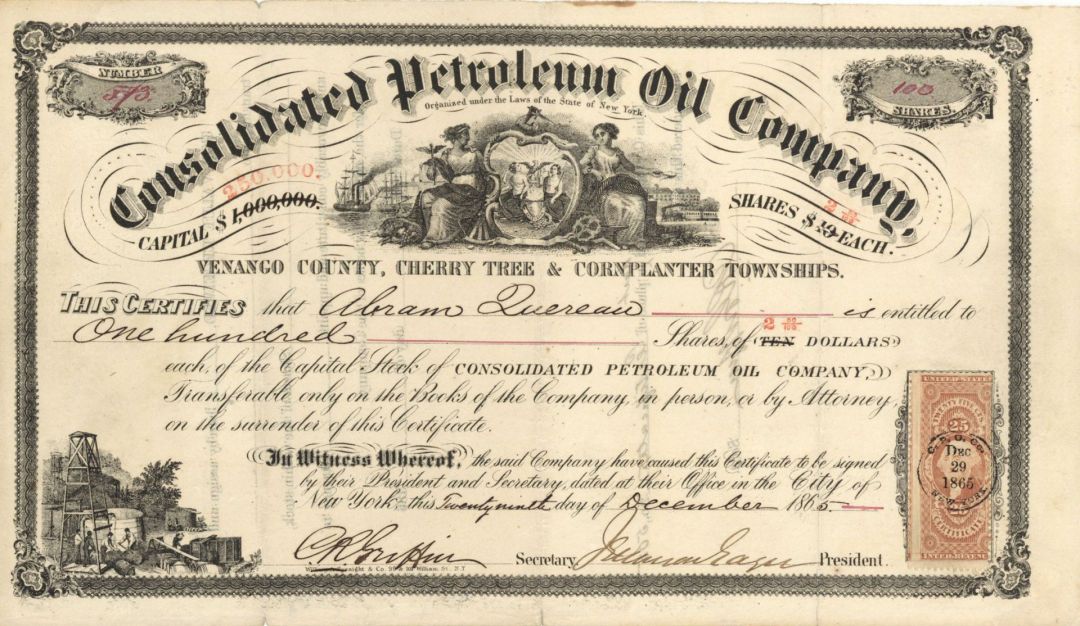 NUMBER
573.
100
SHARES
Consolidated Petroleum Oil Company,
Organized under the Laws of the State of New York.
250.000.
CAPITAL $ 1,000,000.
2 50/100
SHARES $ 10 EACH.
VENANGO COUNTY, CHERRY TREE & CORNPLANTER TOWNSHIPS.
THIS CERTIFIES that Abram Quereau is entitled to
2 50/100
One hundred Shares, of TEN DOLLARS
each, of the Capital Stock of CONSOLIDATED PETROLEUM OIL COMPANY,
Transferable only on the Books of the Company, in person, or by Attorney,
on the surrender of this Certificate.
In Witness Whereof, the said Company have caused this Certificate to be signed
by their President and Secretary, dated at their Office in the City of
New York, this Twenty ninth day of December 1865.
Secretary
President.
& Co.
William St., N.Y.
UNITED STATES
25
C. P. O. Co.
DEC
29
1865
NEW YORK
CERTIFICATE
INTER. REVENUE